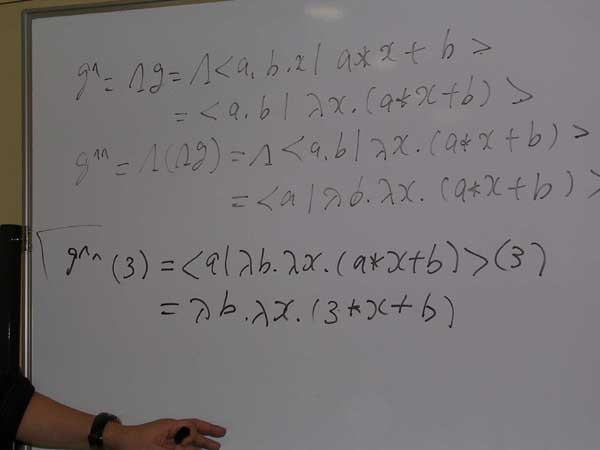 g^ = Λg = Λ<a.b.x| a*x+b>
= <a.b| λx.(a*x+b)>
g^^ = Λ(Λg) = Λ<a.b| λx.(a*x+b)>
= <a| λb.λx.(a*x+b)>
g^^ (3) = <a| λb.λx.(a*x+b)>(3)
= λb.λx.(3*x+b)